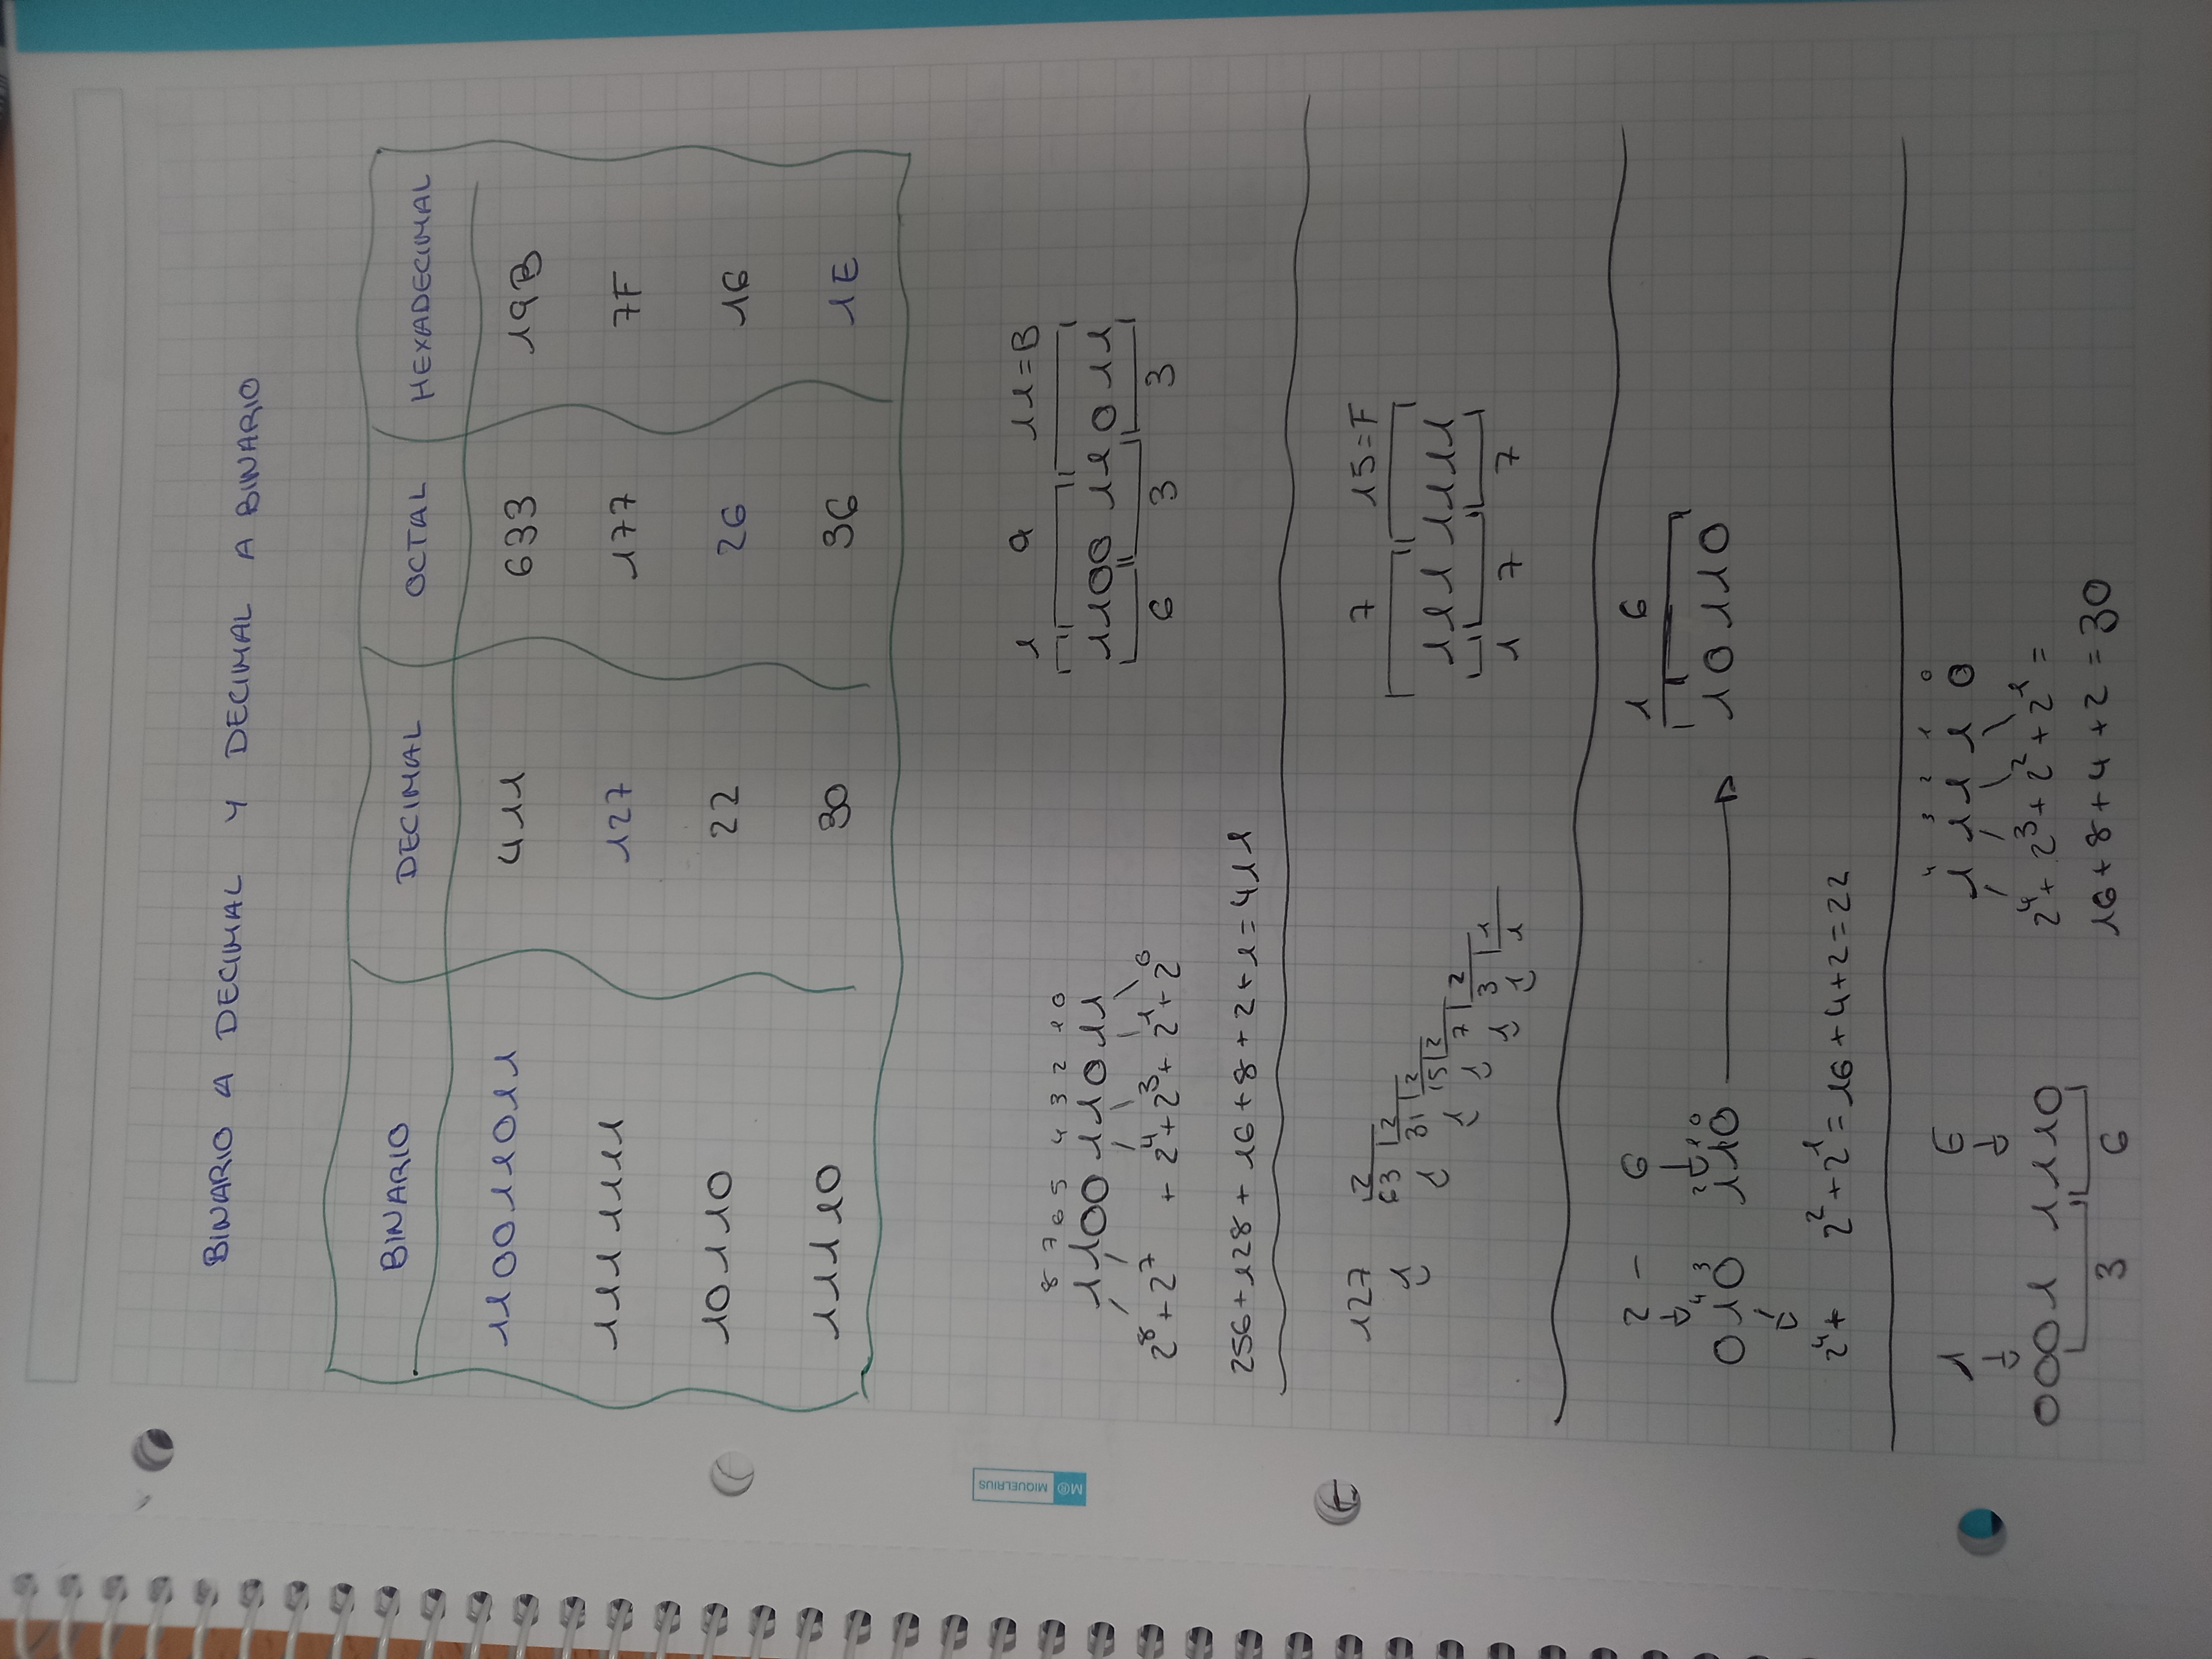 BINARIO A DECIMAL Y DECIMAL A BINARIO
BINARIO DECIMAL OCTAL HEXADECIMAL
110011011 411 633 19B
1111111 127 177 7F
10110 22 26 16
11110 30 36 1E
M® MIQUELRIUS
8 7 6 5 4 3 2 1 0
110011011
2⁸ + 2⁷ + 2⁴ + 2³ + 2¹ + 2⁰
256 + 128 + 16 + 8 + 2 + 1 = 411
1 9 11 = B
110011011
6 3 3
127 2
1 63 2
1 31 2
1 15 2
1 7 2
1 3 1
1 1
7 15 = F
1111111
1 7 7
2 - 6
4 3 2 1 0
010 110
2⁴ + 2² + 2¹ = 16 + 4 + 2 = 22
1 6
10110
1 E
0001 1110
3 6
4 3 2 1 0
1 1 1 1 0
2⁴ + 2³ + 2² + 2¹ =
16 + 8 + 4 + 2 = 30